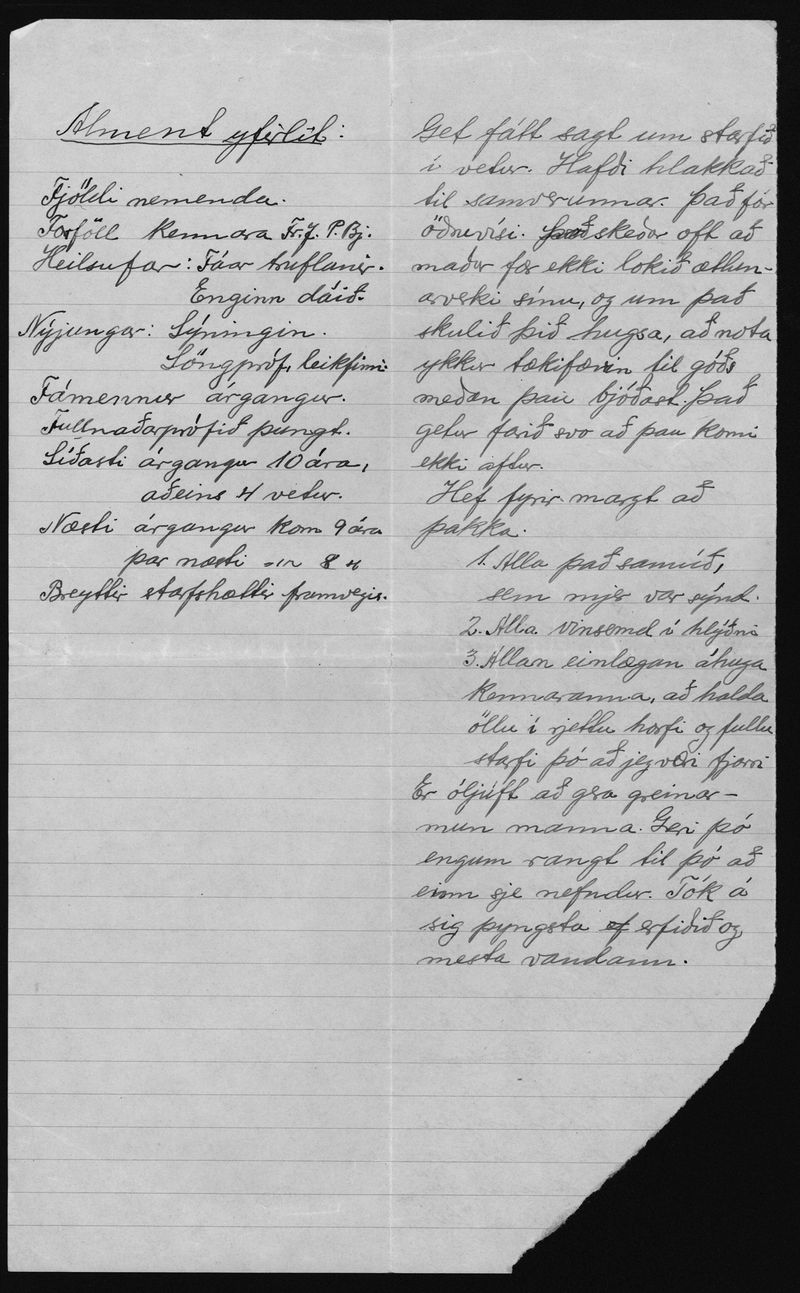 Alment yfirlit:
Fjöldi nemenda.
Forföll kennara Fr. J. P. Bj.
Heilsufar: Fáar truflanir.
Enginn dáið.
Nýjungar: Sýningin.
Söngpróf, leikfimi.
Fámennur árgangur.
Fullnaðarprófið þungt.
Síðasti árgangur 10 ára,
aðeins 4 vetur.
Næsti árgangur kom 9 ára
þar næsti -"- 8 "
Breyttir starfshættir framvegis.
Get fátt sagt um starfið
í vetur. Hafði hlakkað
til samverunnar. Það fór
öðruvísi. Það skeður oft að
maður fær ekki lokið ætlun-
arverki sínu, og um það
skulið þið hugsa, að nota
ykkur tækifærin til góðs
meðan þau bjóðast. Það
getur farið svo að þau komi
ekki aftur.
Hef fyrir margt að
þakka.
1. Alla það samúð,
sem mjer var sýnd.
2. Alla vinsemd í hlýðni
3. Allan einlægan áhuga
kennaranna, að halda
öllu í rjettu horfi og fullu
starfi þó að jeg væri fjarri
Er óljúft að gera greinar-
mun manna. Geri þó
engum rangt til þó að
einn sje nefndur. Tók á
sig þyngsta af erfiðið og
mesta vandann.